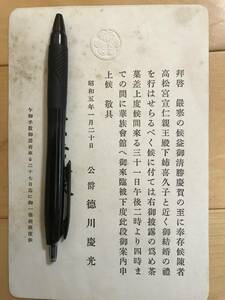 拝啓 嚴寒の候益御清勝慶賀の至に奉存候陳者
高松宮宣仁親王殿下姉喜久子と近く御結婚の禮
を行はせらるべく候に付ては右御披露の爲め茶
菓差上度候間來る三十一日午後二時より四時ま
での間に華族會館へ御來臨被下度此段御案内申
上候 敬具
昭和五年一月二十日
公爵 德川慶光